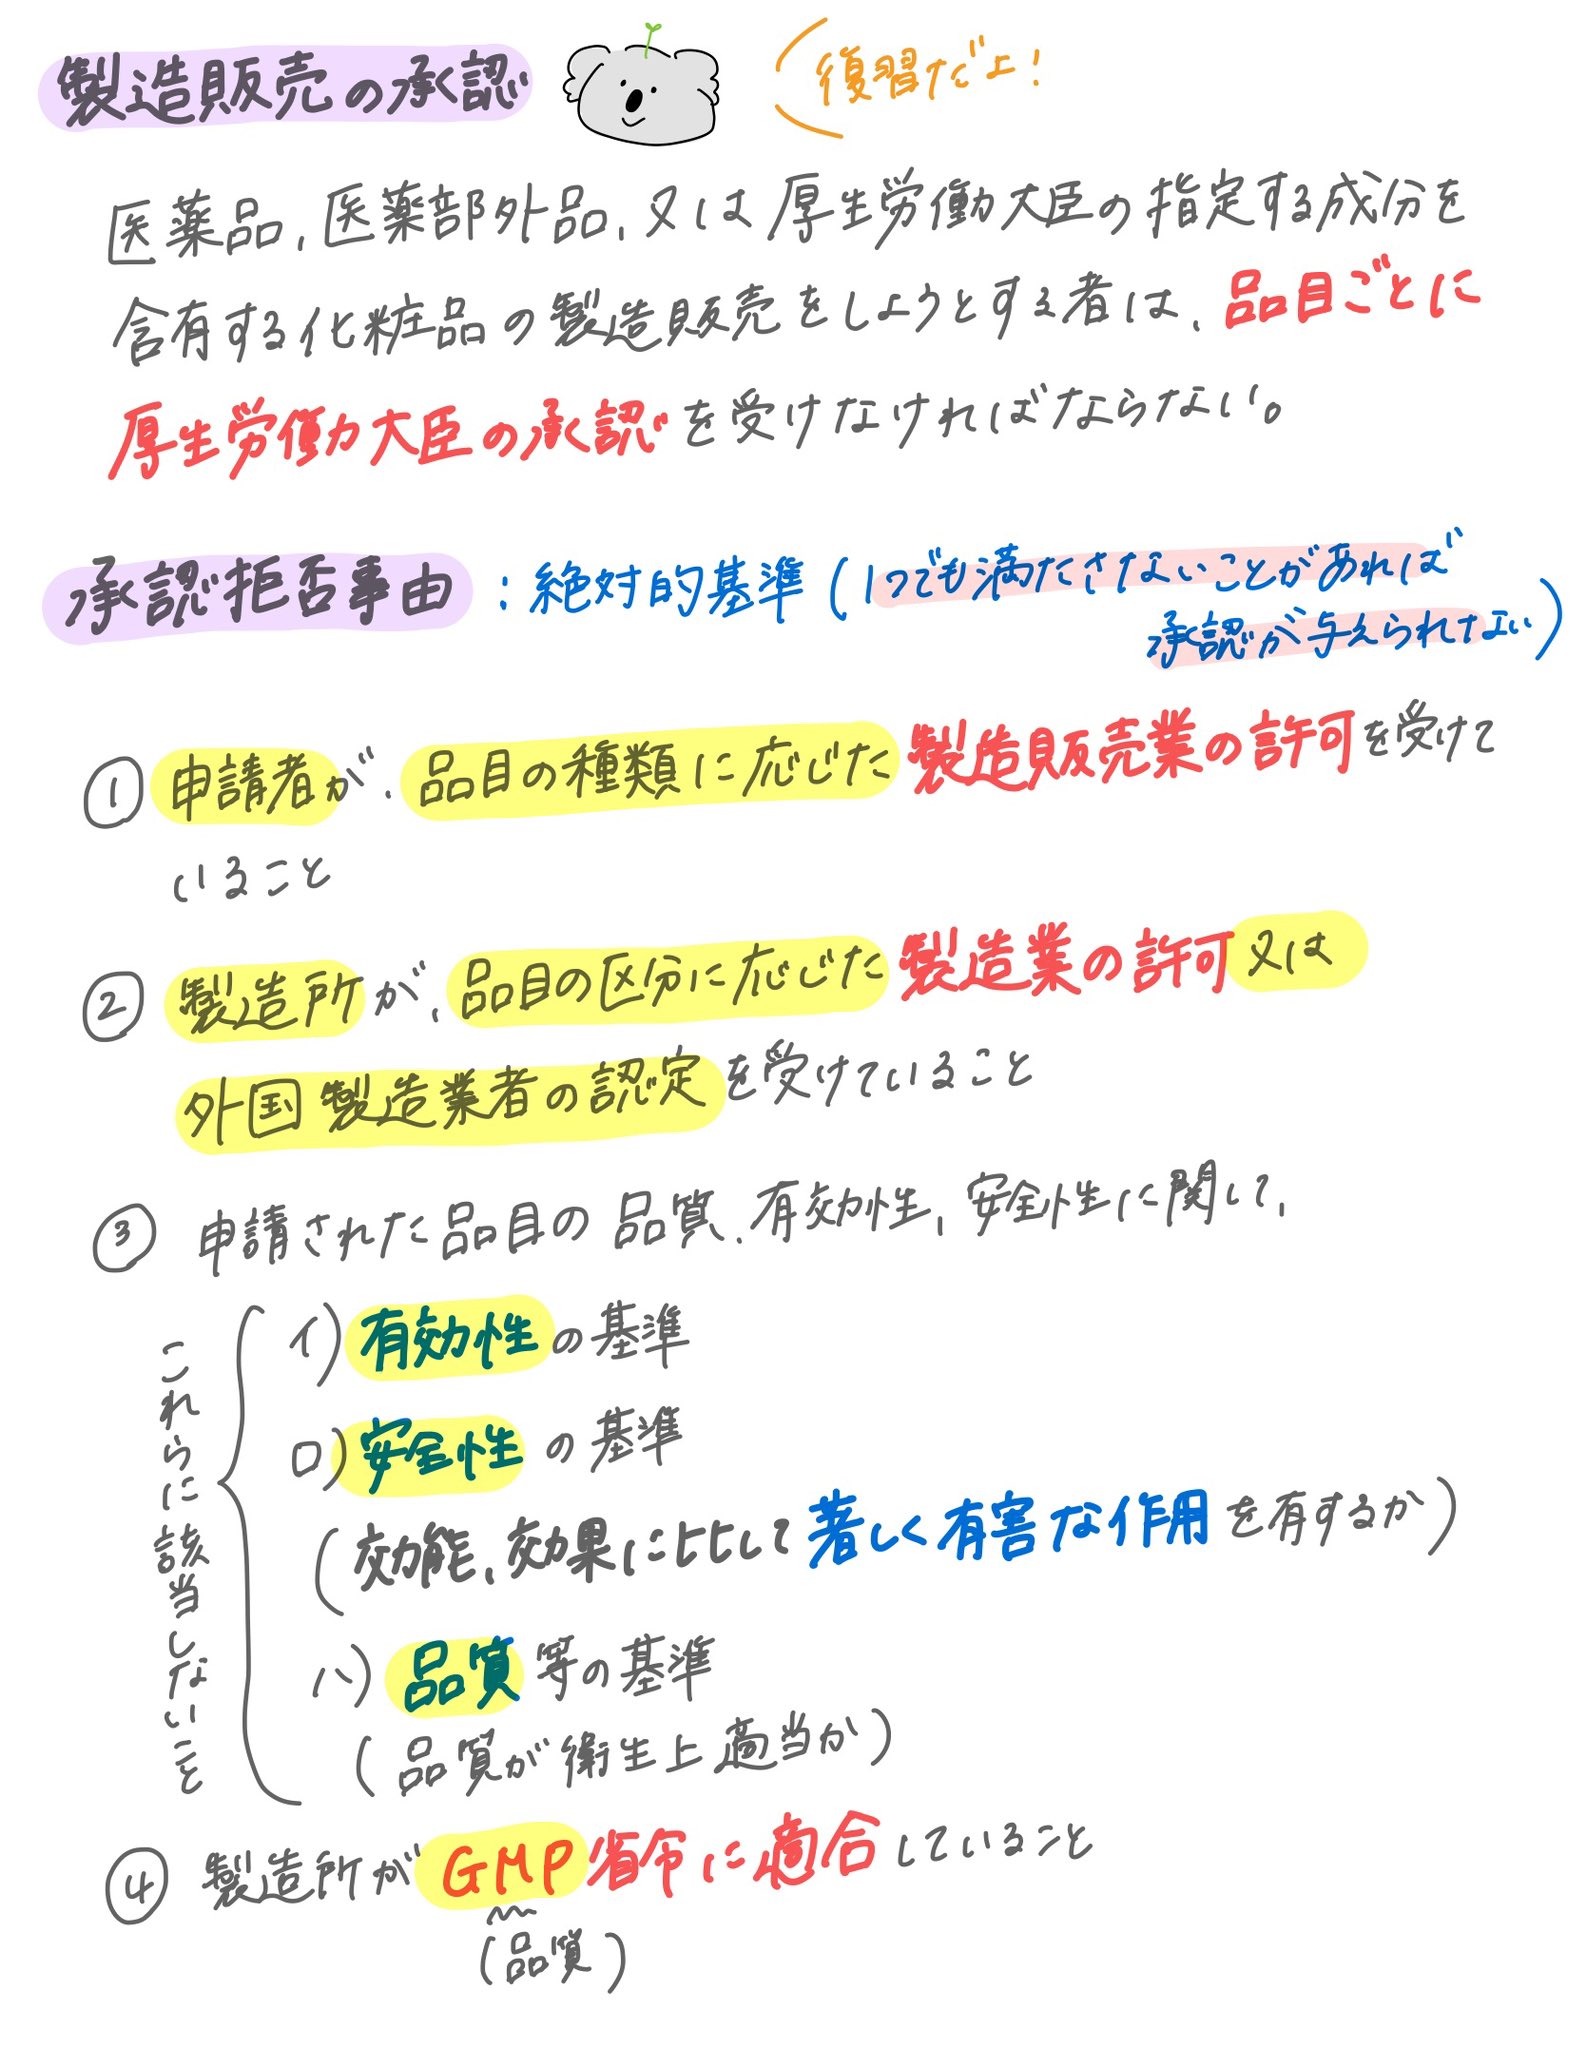 製造販売の承認
復習だよ!
医薬品,医薬部外品,又は厚生労働大臣の指定する成分を
含有する化粧品の製造販売をしようとする者は、品目ごとに
厚生労働大臣の承認を受けなければならない。
承認拒否事由:絶対的基準(1つでも満たさないことがあれば
承認が与えられない)
① 申請者が、品目の種類に応じた製造販売業の許可を受けて
いること
② 製造所が、品目の区分に応じた製造業の許可又は
外国製造業者の認定を受けていること
③ 申請された品目の品質、有効性,安全性に関して,
これらに該当しないこと
イ)有効性の基準
ロ)安全性の基準
(効能、効果に比して著しく有害な作用を有するか)
ハ)品質等の基準
(品質が衛生上適当か)
④ 製造所がGMP省令に適合していること
(品質)